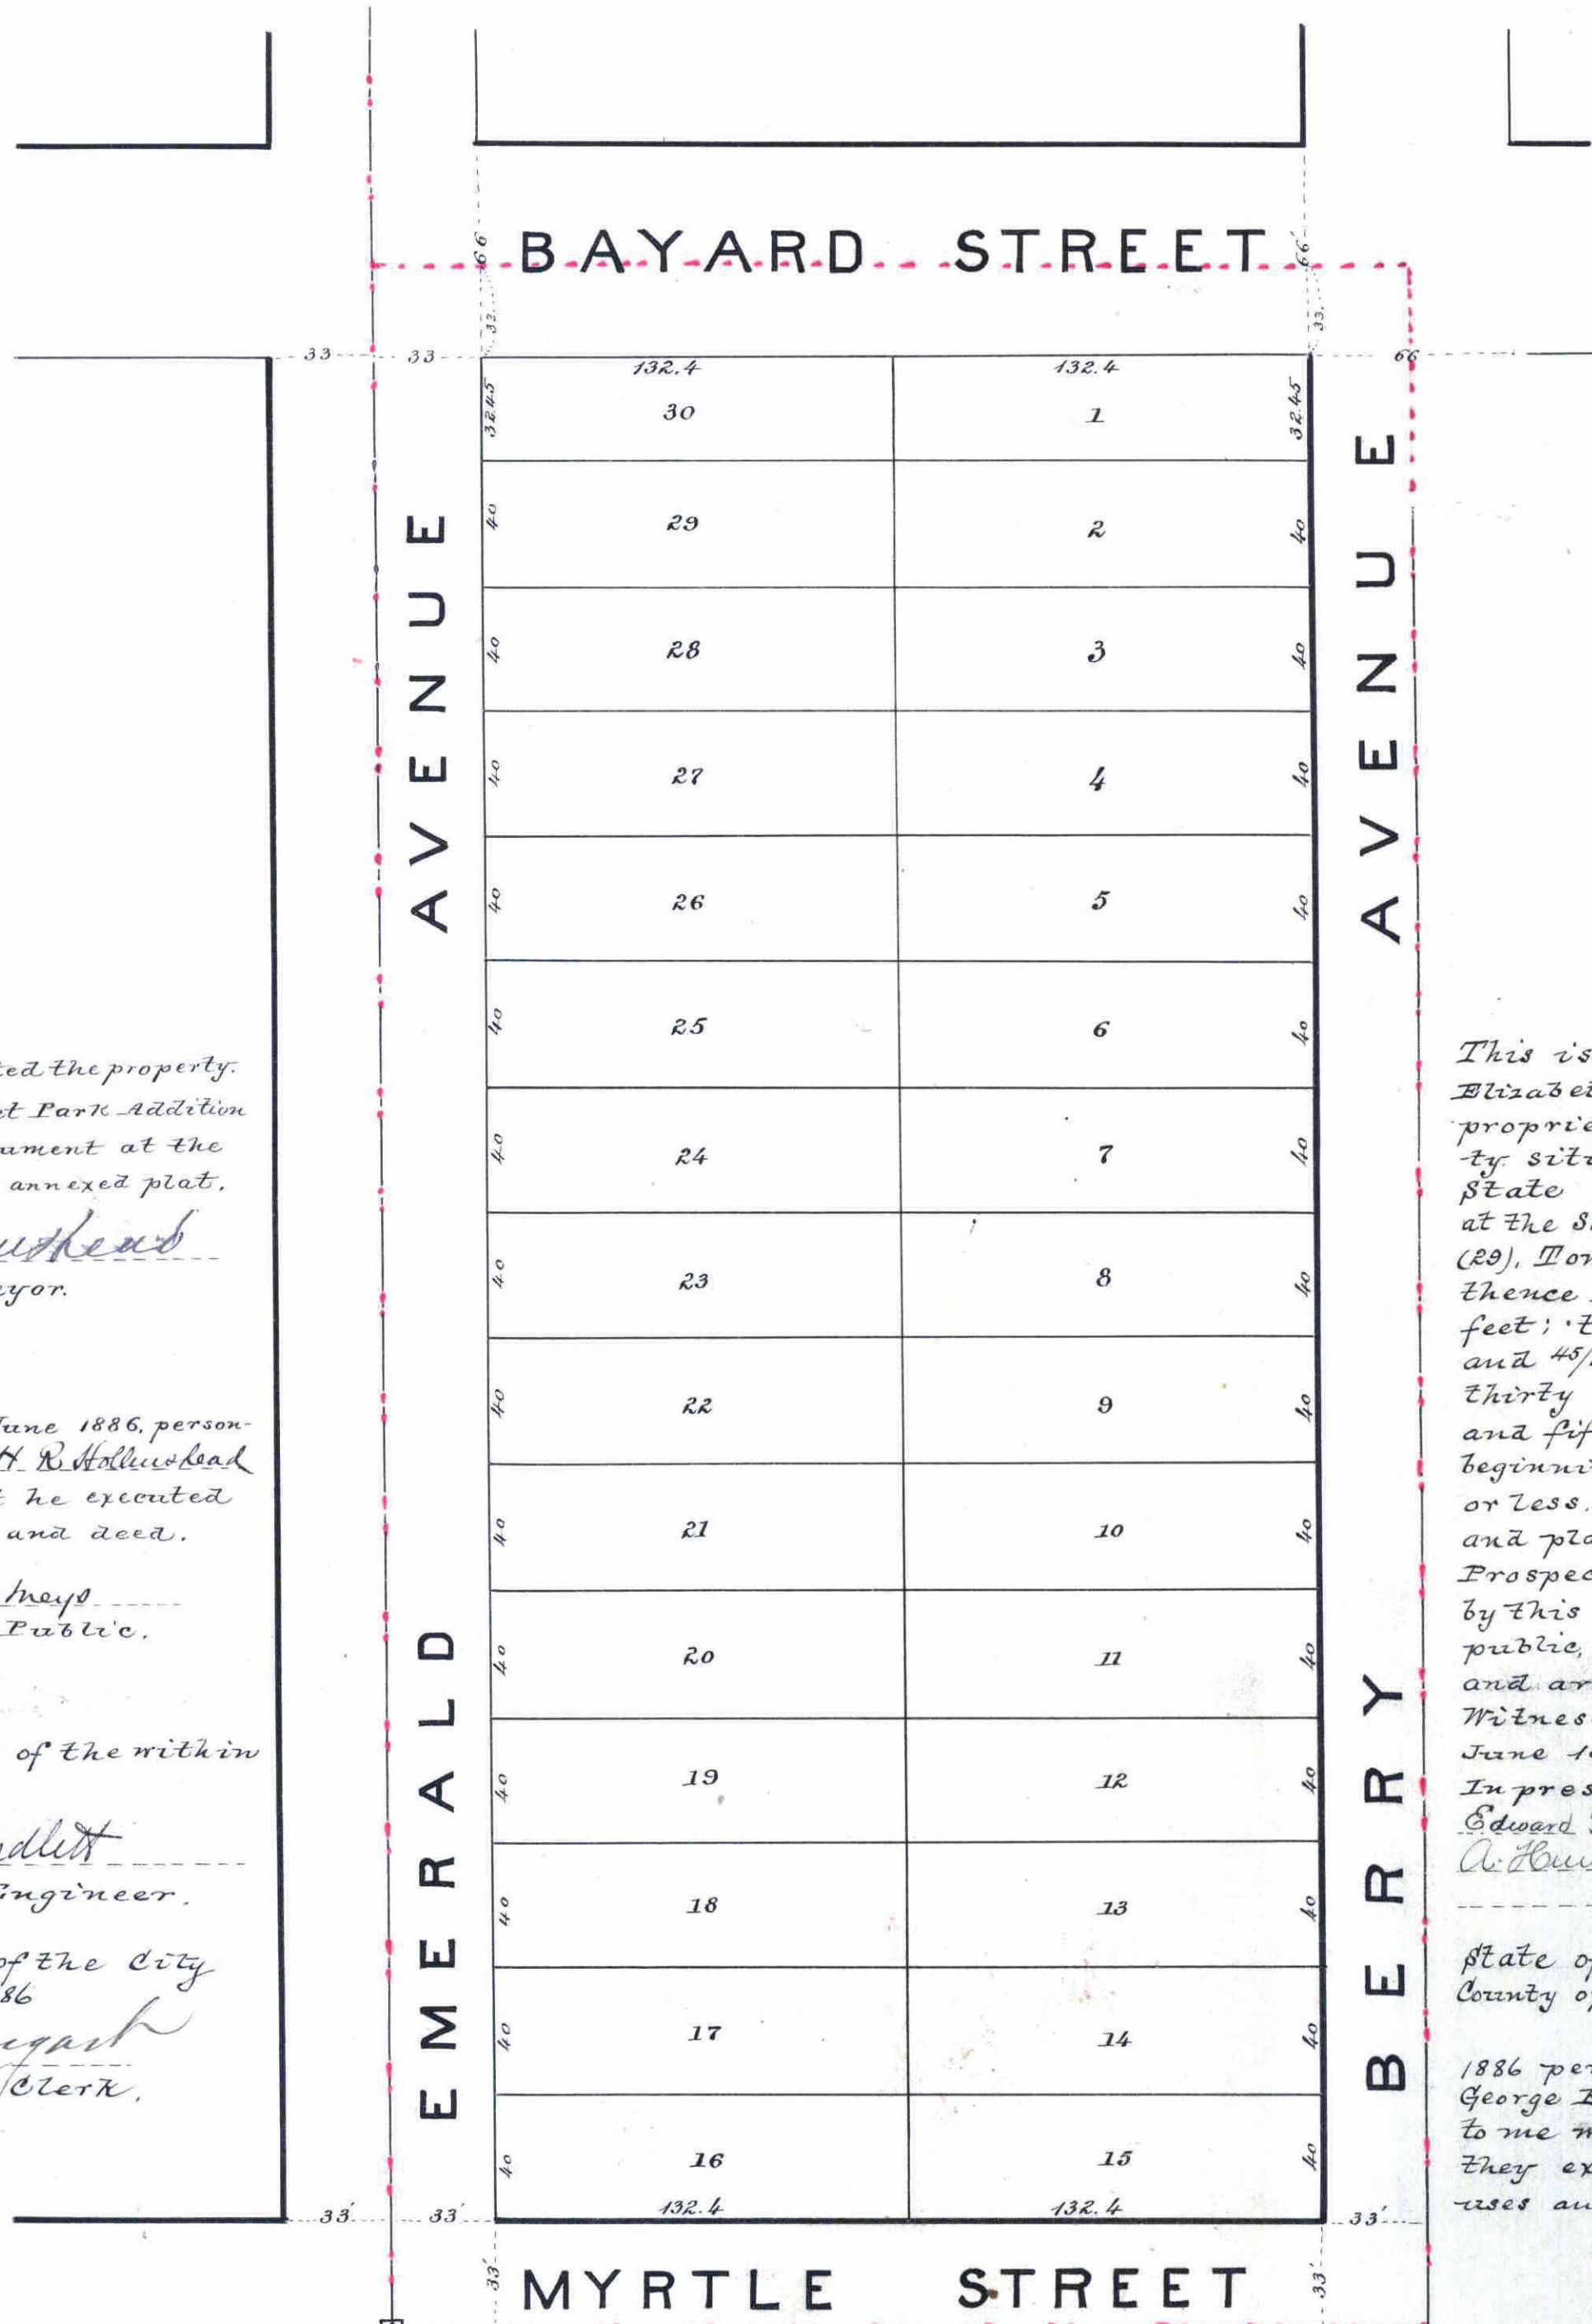 BAYARD STREET
66'
66'
33.
33.
33
33
66
132.4
132.4
32.45
30
1
32.45
40
29
2
40
40
28
3
40
40
27
4
40
40
26
5
40
40
25
6
40
40
24
7
40
40
23
8
40
40
22
9
40
40
21
10
40
40
20
11
40
40
19
12
40
40
18
13
40
40
17
14
40
40
16
15
40
132.4
132.4
33'
33'
33'
33'
33'
EMERALD AVENUE
BERRY AVENUE
MYRTLE STREET
ted the property.
et Park Addition
ument at the
annexed plat.
eyor.
June 1886, person-
H. R. Hollinshead
he executed
and deed.
Public.
of the within
Engineer.
of the City
86
Clerk.
This is
Elizabet
proprie
ty situ
State
at the S
(29), Tow
thence
feet; t
and 45/
thirty
and fif
beginni
or less.
and pla
Prospec
by this
public,
and ar
Witnes
June 1
In pres
Edward
State of
County of
1886 per
George
to me
they ex
uses an